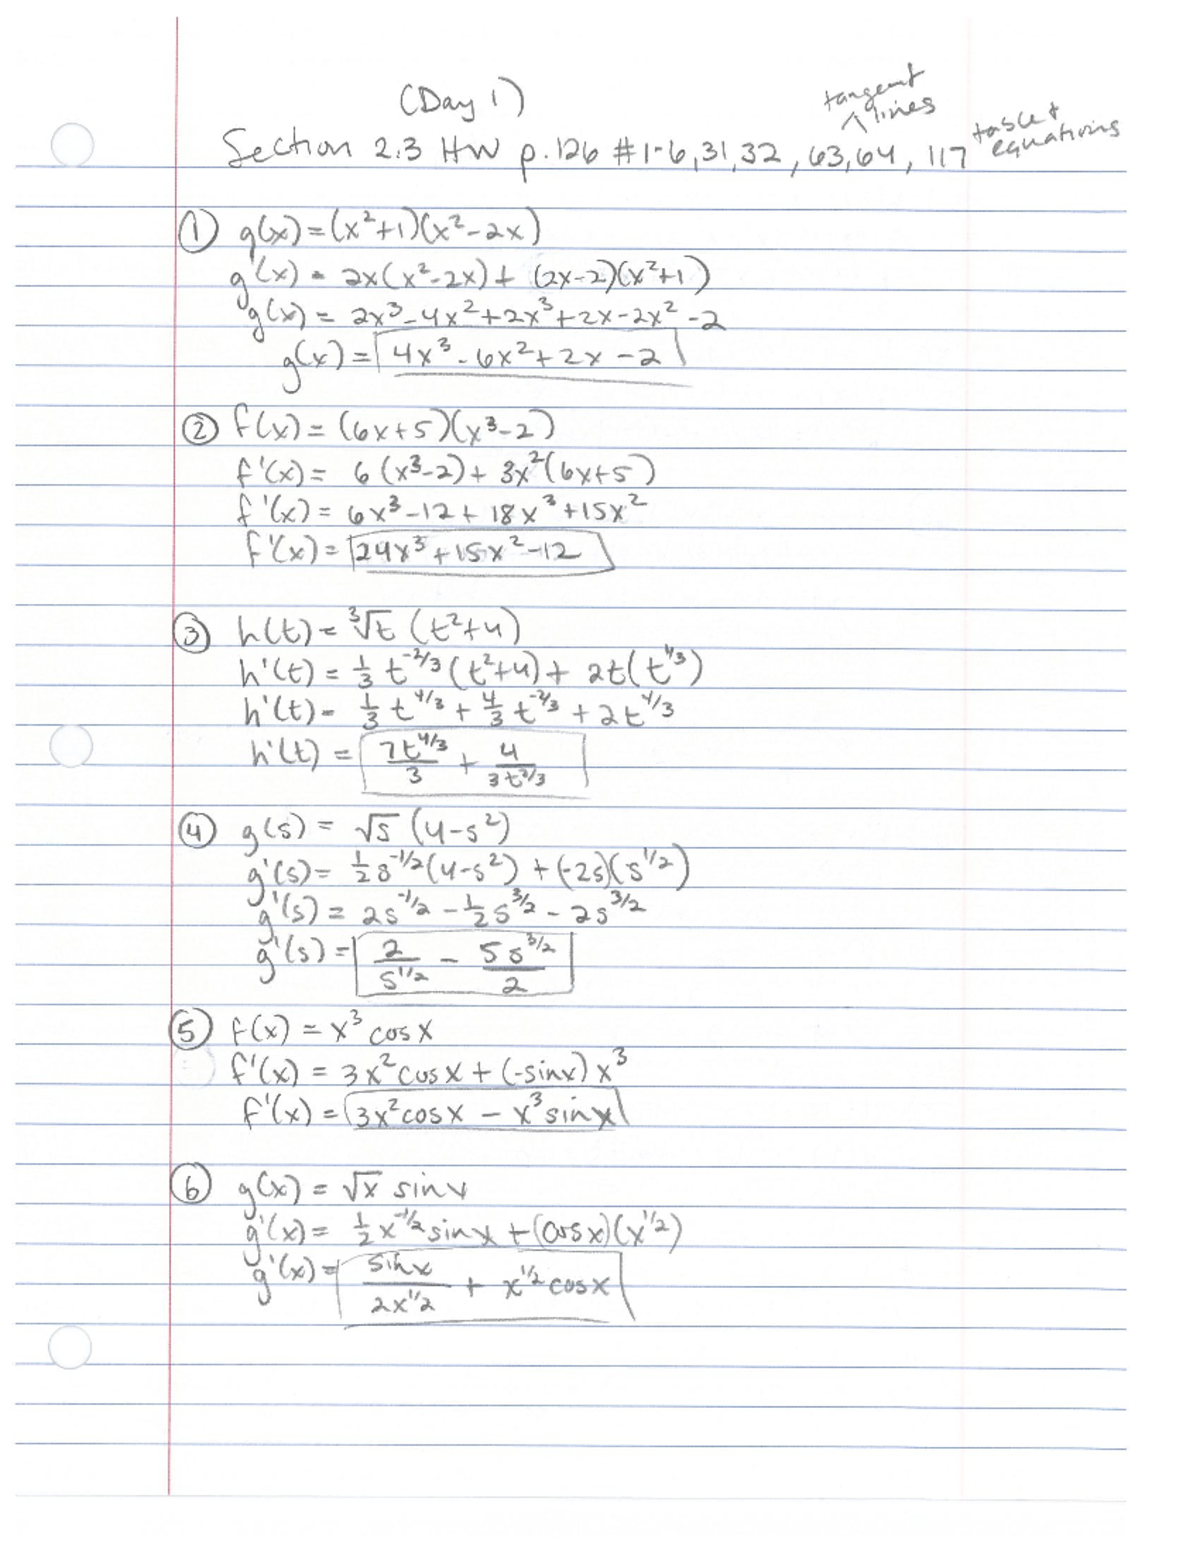 (Day 1)
tangent
lines
Section 2.3 HW p.126 #1-6,31,32, 63,64, 117
equations
① g(x) = (x²+1)(x²-2x)
g'(x) = 2x(x²-2x) + (2x-2)(x²+1)
g'(x) = 2x³-4x²+2x³+2x-2x²-2
g(x) = 4x³-6x²+2x-2
② f(x) = (6x+5)(x³-2)
f'(x) = 6(x³-2)+ 3x²(6x+5)
f'(x) = 6x³-12+ 18x³+15x²
f'(x) = 24x³+15x²-12
③ h(t) = ∛t (t²+4)
h'(t) = 1/3 t^(-2/3) (t²+4) + 2t(t^(1/3))
h'(t) = 1/3 t^(4/3) + 4/3 t^(-2/3) + 2t^(4/3)
h'(t) = 7t^(4/3)/3 + 4/(3t^(2/3))
④ g(s) = √s (4-s²)
g'(s) = 1/2 s^(-1/2) (4-s²) + (-2s)(s^(1/2))
g'(s) = 2s^(-1/2) - 1/2 s^(3/2) - 2s^(3/2)
g'(s) = 2/s^(1/2) - 5s^(3/2)/2
⑤ f(x) = x³ cosx
f'(x) = 3x² cosx + (-sinx) x³
f'(x) = 3x²cosx - x³sinx
⑥ g(x) = √x sinx
g'(x) = 1/2 x^(-1/2) sinx + (cosx)(x^(1/2))
g'(x) = sinx/(2x^(1/2)) + x^(1/2) cosx